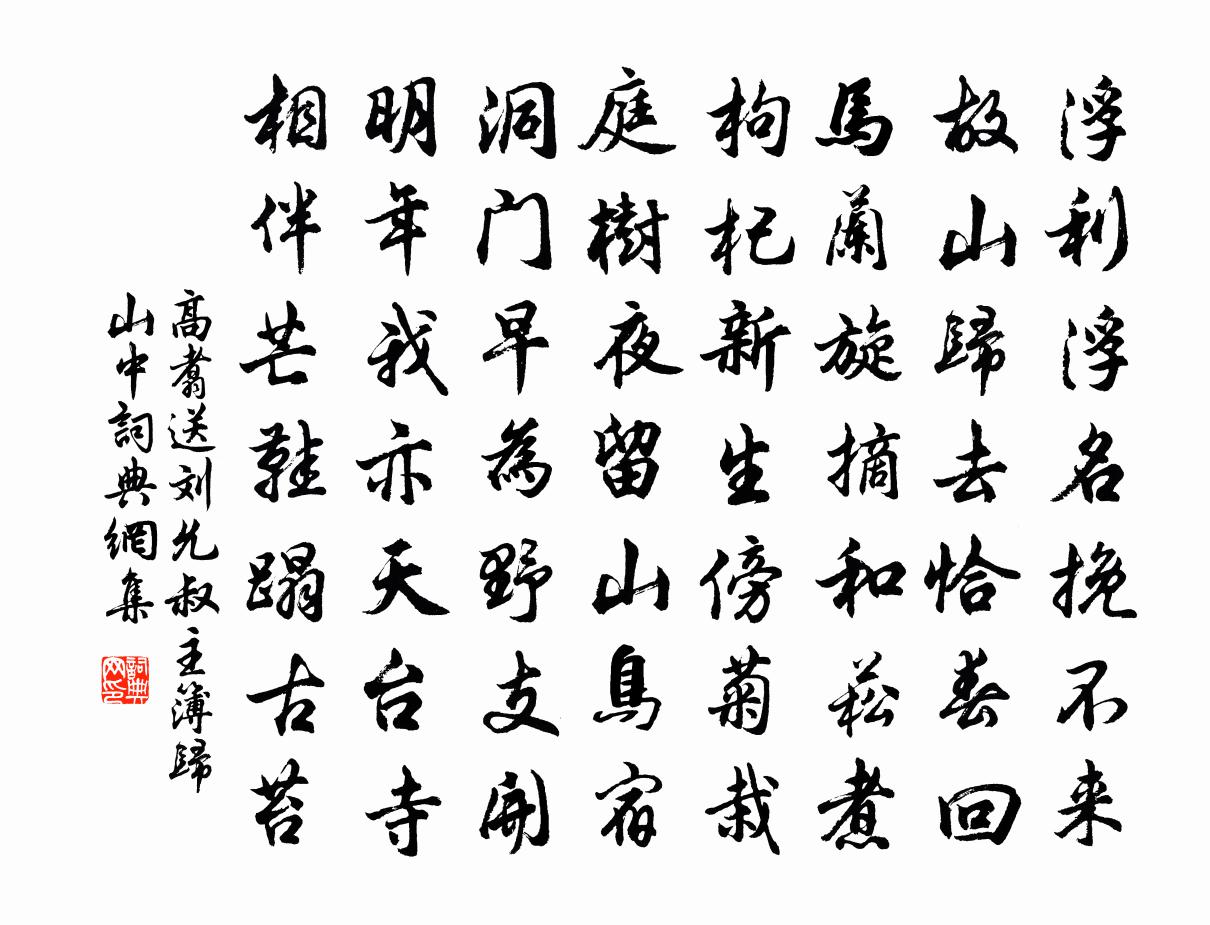 浮利浮名挽不来
故山歸去恰春回
馬蘭旋摘和菘煮
枸杞新生傍菊栽
庭樹夜留山鳥宿
洞门早為野支開
明年我亦天台寺
相伴芒鞋蹋古苔
高翥送刘允叔主簿歸
山中詞典網集
詞典
网印